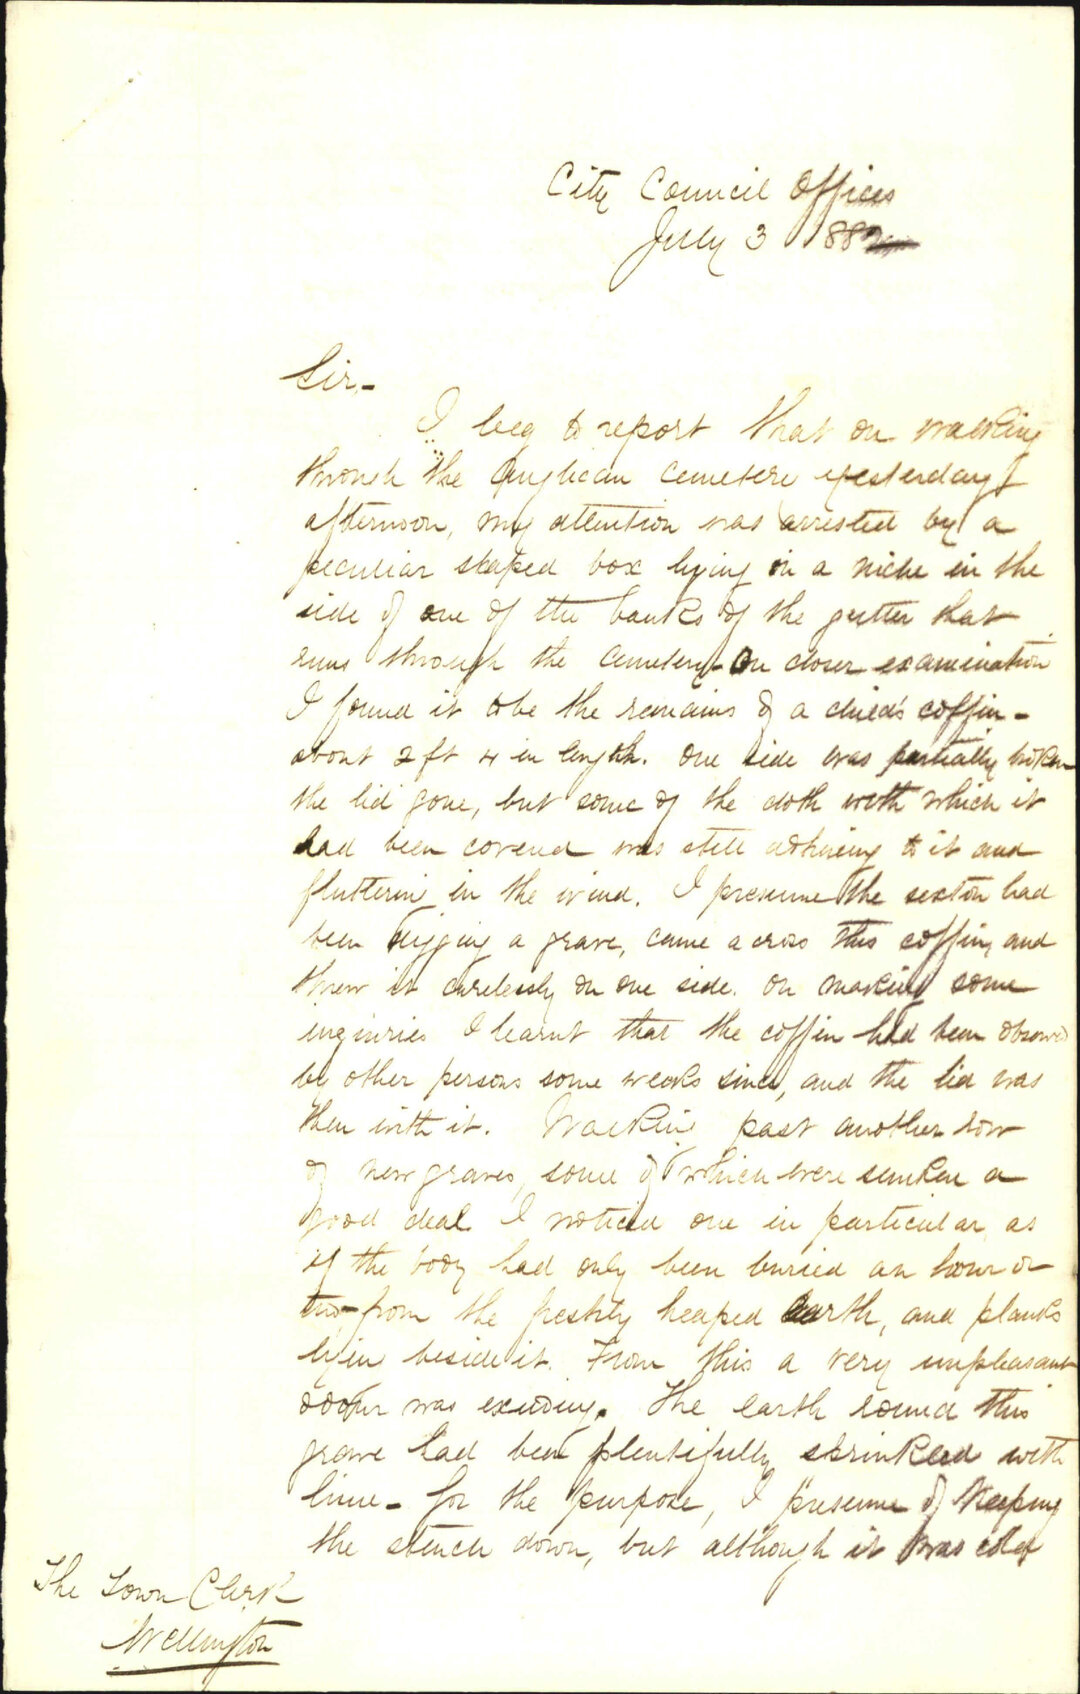 City Council Offices
July 3 1882
Sir,-
I beg to report that on walking
through the Anglican Cemetery yesterday
afternoon, my attention was arrested by a
peculiar shaped box lying in a niche in the
side of one of the banks of the gutter that
runs through the Cemetery. On closer examination
I found it to be the remains of a child's coffin -
about 2 ft 4 in length. One side was partially broken
the lid gone, but some of the cloth with which it
had been covered was still adhering to it and
fluttering in the wind. I presume the sexton had
been digging a grave, came across this coffin, and
threw it carelessly on one side. On making some
inquiries I learnt that the coffin had been observed
by other persons some weeks since, and the lid was
then with it. Walking past another row
of new graves, some of which were sunken a
good deal I noticed one in particular, as
if the body had only been buried an hour or
two, from the freshly heaped earth, and planks
lying beside it. From this a very unpleasant
odour was exuding. The earth round this
grave had been plentifully sprinkled with
lime - for the purpose, I presume of keeping
the stench down, but although it was cold
The Town Clerk
Wellington